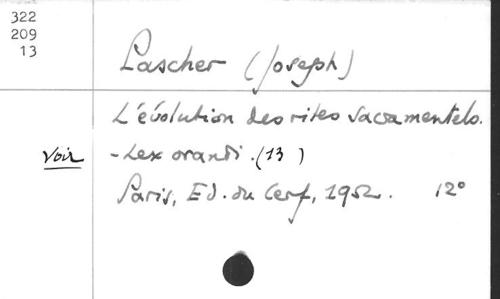 322
209
13
Pascher (Joseph)
L'évolution des rites sacramentels.
Voir - Lex orandi. (13)
Paris, Ed. du Cerf, 1952. 12°